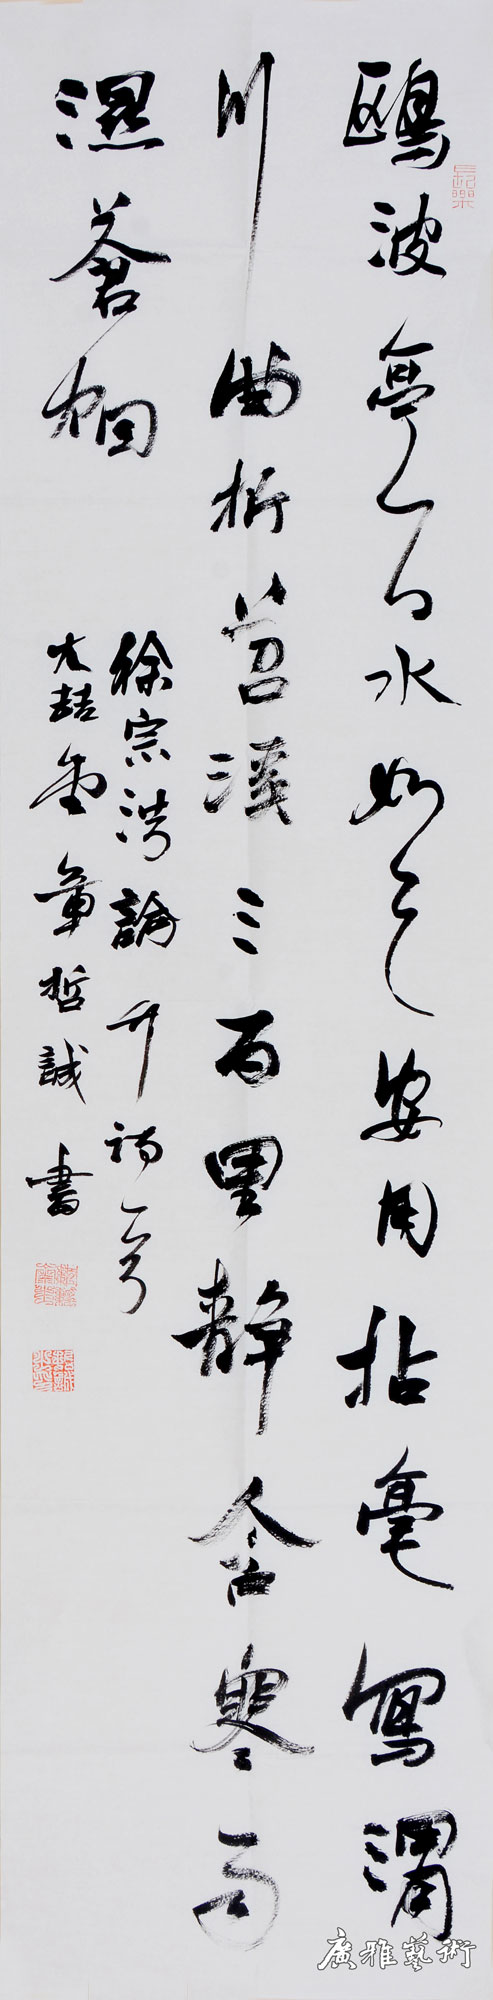 鷗波亭下水如天安用拈毫寫渭
川曲折苕溪三百里靜含寒雨
濕蒼烟
徐宗浩論竹詩一首
大喆堂章哲誠書
廣雅藝術